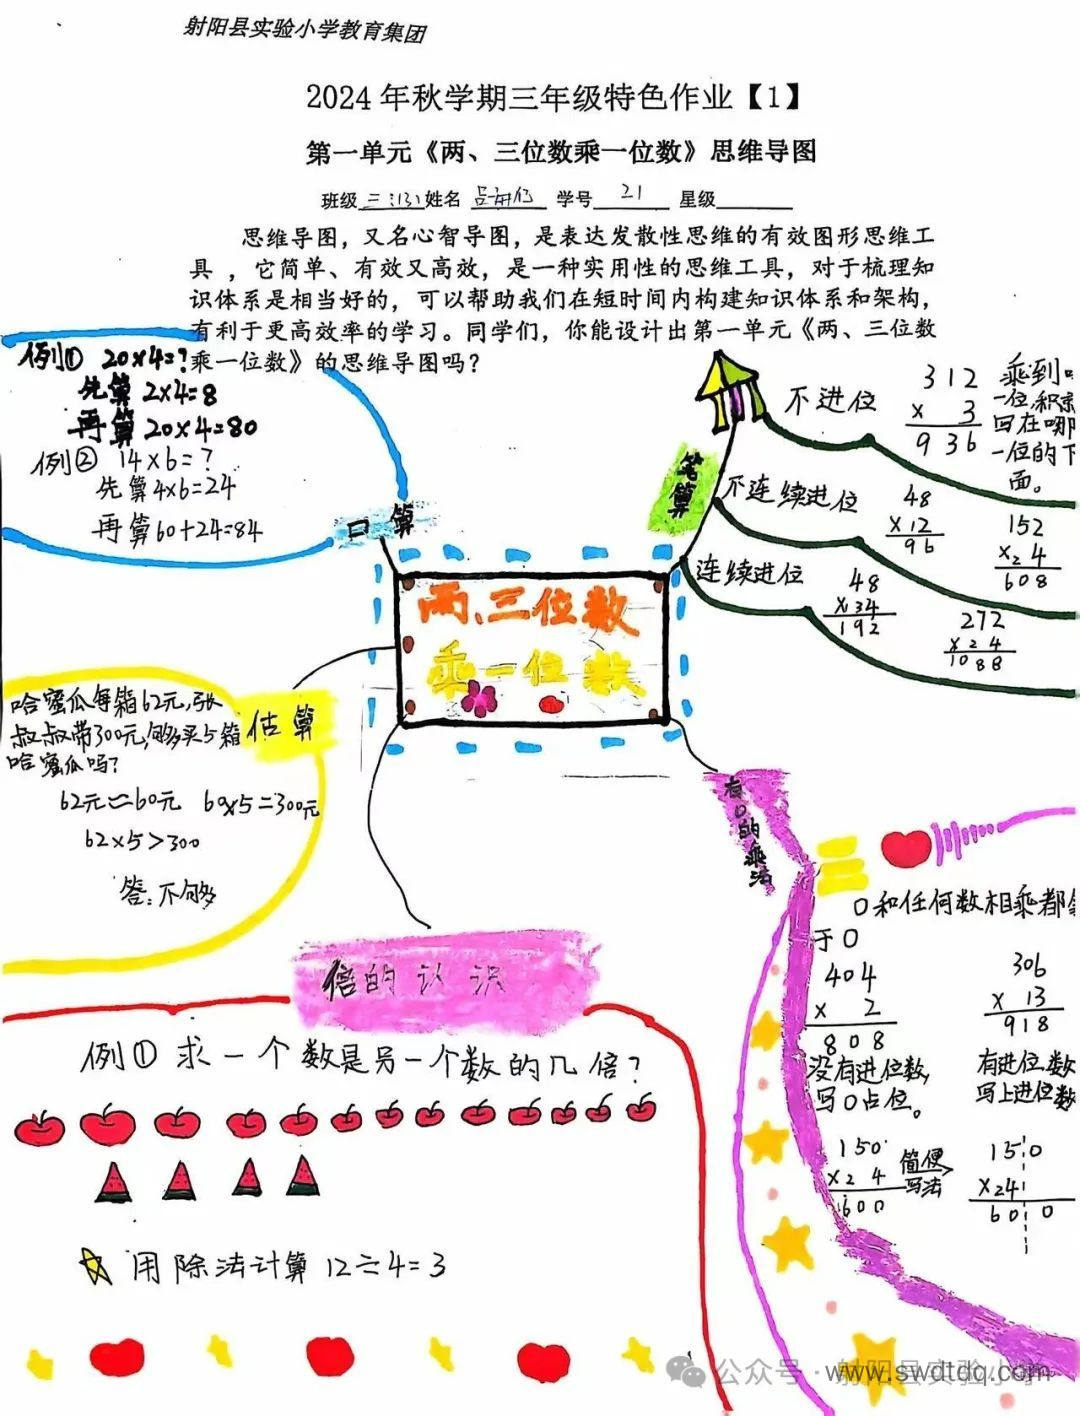 射阳县实验小学教育集团
2024年秋学期三年级特色作业【1】
第一单元《两、三位数乘一位数》思维导图
班级 三(13) 姓名 学号 21 星级
思维导图，又名心智导图，是表达发散性思维的有效图形思维工
具 ，它简单、有效又高效，是一种实用性的思维工具，对于梳理知
识体系是相当好的，可以帮助我们在短时间内构建知识体系和架构，
有利于更高效率的学习。同学们，你能设计出第一单元《两、三位数
乘一位数》的思维导图吗？
例① 20×4=?
先算 2×4=8
再算 20×4=80
例② 14×6=?
先算 4×6=24
再算 60+24=84
口算
笔算
不进位
312
× 3
936
乘到
一位,积
写在哪
一位的下
面。
不连续进位
48
×12
96
152
×2 4
608
连续进位
48
×34
192
272
×2 4
1088
两、三位数
乘一位数
估算
哈蜜瓜每箱62元,张
叔叔带300元,够买5箱
哈蜜瓜吗?
62元≈60元 60×5=300元
62×5>300
答:不够
有0的乘法
0和任何数相乘都
于0
404
× 2
808
没有进位数,
写0占位。
306
× 13
918
有进位,数
写上进位数
150
×2 4
600
简便
写法
15¦0
×24¦
60¦0
倍的认识
例① 求一个数是另一个数的几倍?
用除法计算 12÷4=3
公众号·射阳县实验小学
www.swdtdq.com